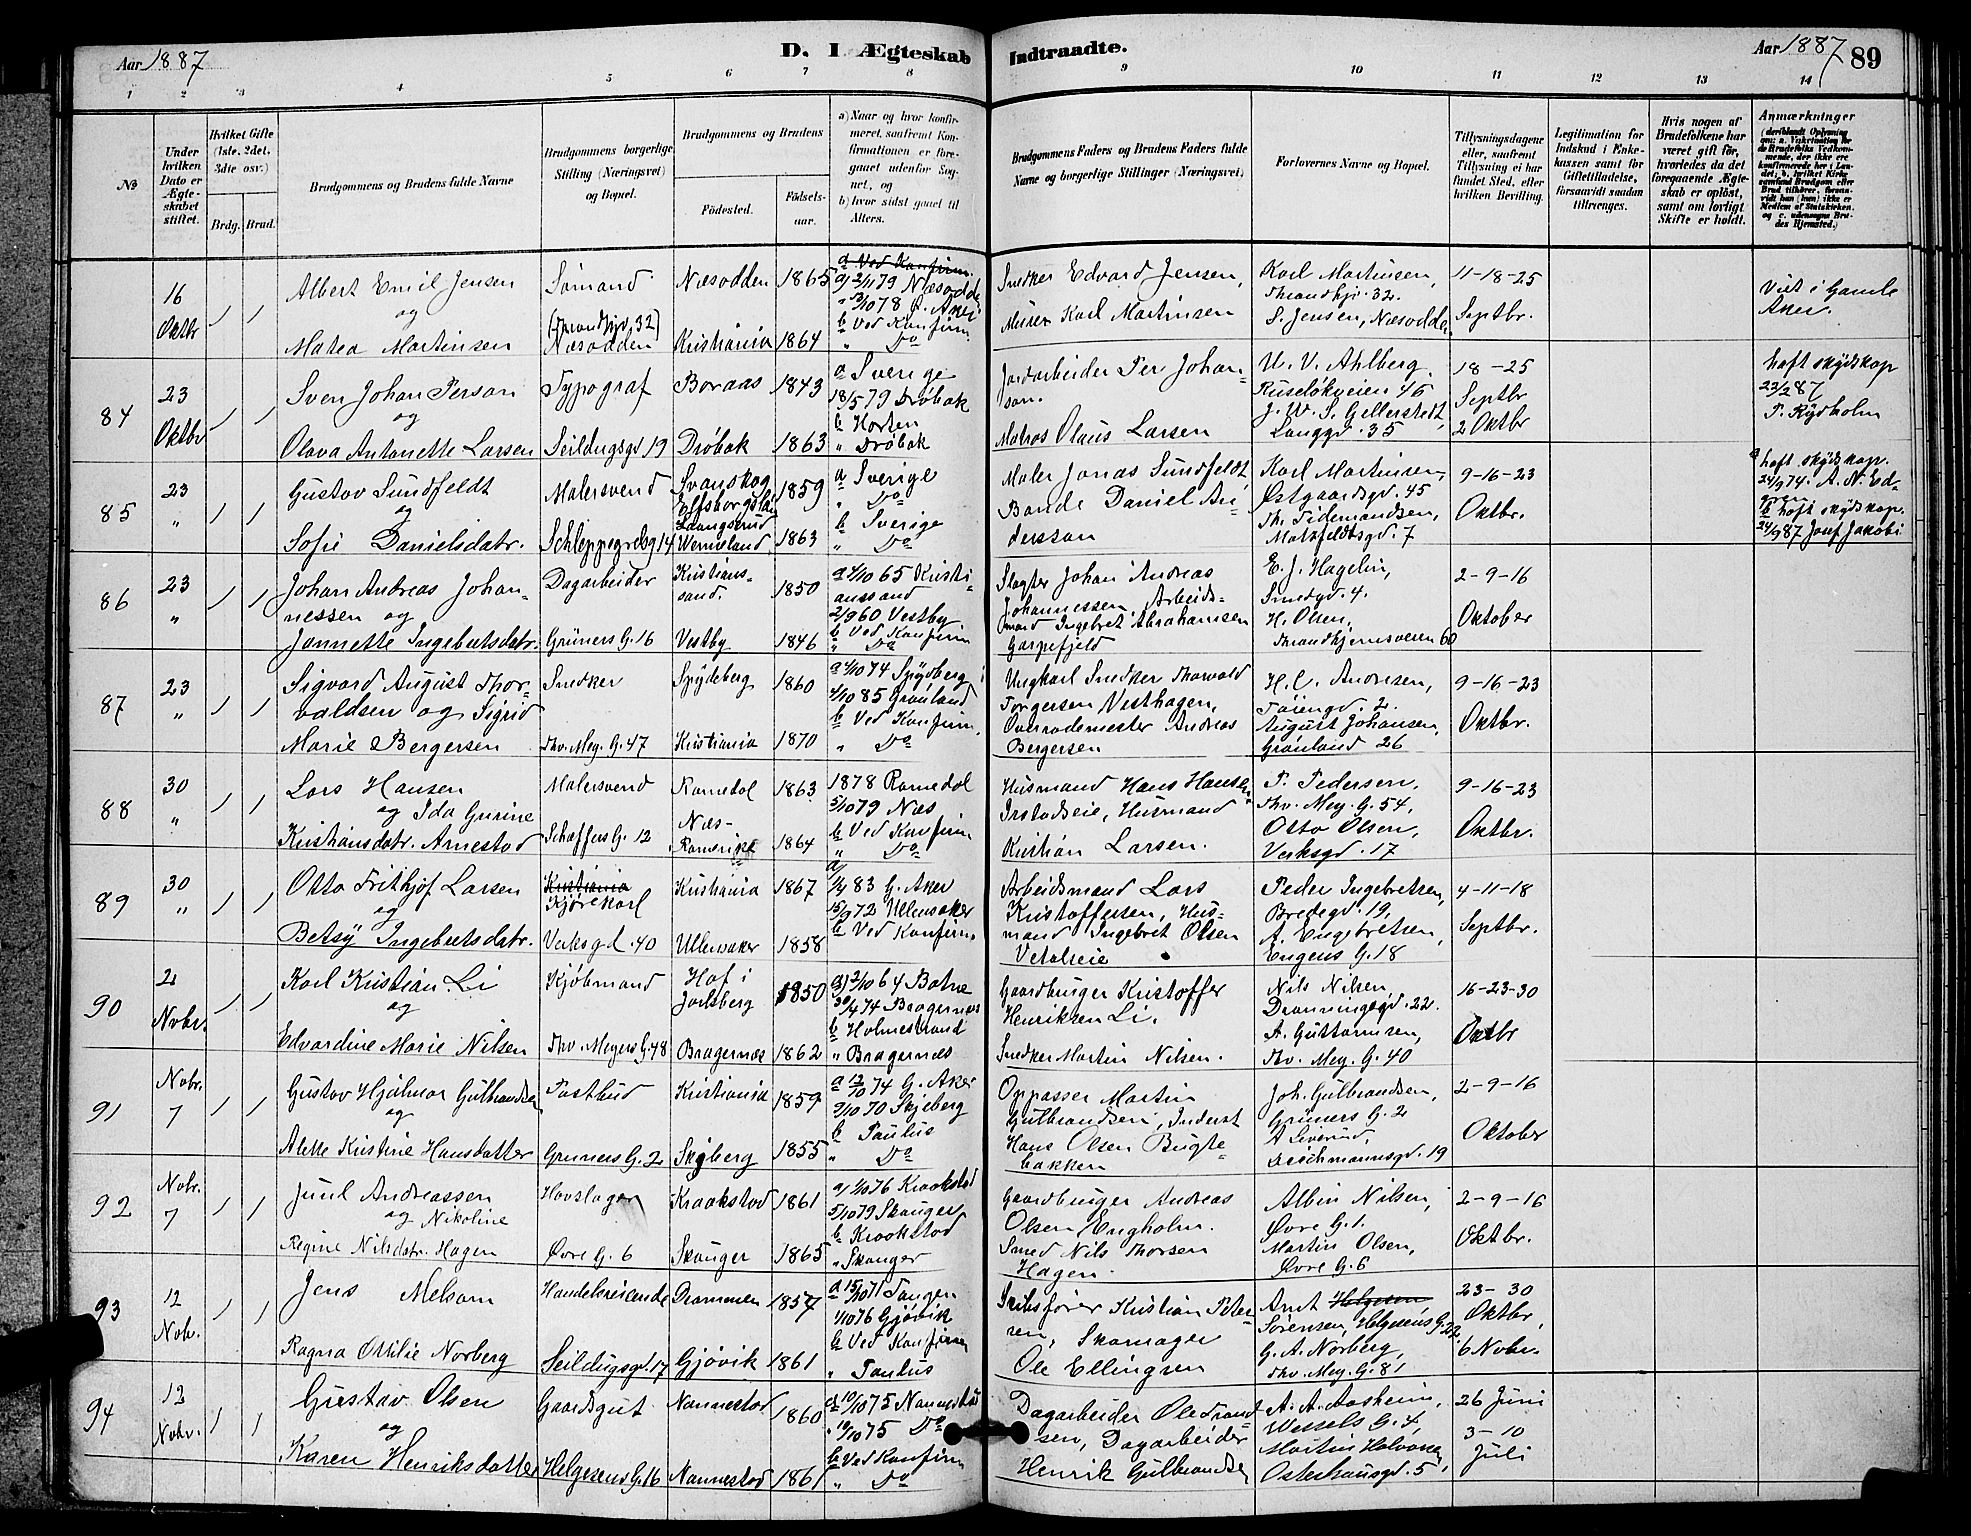 Aar 1887
D. 1 Ægteskab
Indtraadte.
Aar 1887
89
1 2 3 4 5 6 7 8 9 10 11 12 13 14
No
Under hvilken Dato er Ægteskabet stiftet.
Hvilket Gifte (1ste, 2det, 3die osv.)
Brdg. Brud.
Brudgommens og Brudens fulde Navne
Brudgommens borgerlige Stilling (Næringsvei) og Bopæl.
Brudgommens og Brudens
Fødested.
Fødselsaar.
a) Naar og hvor konfirmeret, saafremt Konfirmationen er foregaaet udenfor Sognet, og
b) hvor sidst gaaet til Alters.
Brudgommens Faders og Brudens Faders fulde Navne og borgerlige Stillinger (Næringsvei)
Forlovernes Navne og Bopæl.
Tillysningsdagene eller, saafremt Tillysning ei har fundet Sted, efter hvilken Bevilling.
Legitimation for Indskud i Enkekassen samt for Giftetilladelse, forsaavidt saadan tiltrænges.
Hvis nogen af Brudefolkene har været gift før, hvorledes da det foregaaende Ægteskab er opløst, samt om lovligt Skifte er holdt.
Anmærkninger
16 Oktbr
1 1
Albert Emil Jensen
og
Matea Martinsen
Sømand
(Thrandhjv. 32)
Næsodden
Næsodden 1865
Kristiania 1864
a Ved Konfirm.
a) 2/11 79 Næsodde
" 3/10 78 G. Aker
b Ved Konfirm.
" Do
Snedker Edvard Jensen,
Murer Karl Martinsen
Karl Martinsen,
Thrandhjv. 32.
S. Jensen, Næsodden
11-18-25
Septbr.
Viet i Gamle
Aker.
84
23 Oktbr
1 1
Sven Johan Person
og
Olava Antonette Larsen
Typograf
Seildugsgd 19
Boraas 1843
Drøbak 1863
a Sverige
18/5 79 Drøbak
b Horten
" Drøbak
Jordarbeider Per Johan-
son.
Matros Olaus Larsen
U. V. Ahlberg,
Ruseløkveien 46
J. W. S. Gellerstedt,
Langgd. 35
18-25
Septbr
2 Oktbr
haft skydskop
23/2 87
P. Rydholm
85
23 "
1 1
Gustav Sundfeldt
og
Sofie Danielsdatr.
Malersvend
Schleppegrelsg 14
Svanskog
Elfsborgslän 1859
Langserud
Wermeland 1863
a Sverige
" Do
b Sverige
" Do
Maler Jonas Sundfeldt,
Bonde Daniel An-
dersson
Karl Martinsen,
Østgaardsgd. 45
Th. Tidemandsen,
Motzfeldtsgd. 7
9-16-23
Oktbr.
a haft skydskop.
24/9 74. A. N. Ed-
gren
b haft skydskop.
24/9 87 Josef Jakobi
86
23 "
1 1
Johan Andreas Johan-
nessen og
Jannette Ingebretsdatr.
Dagarbeider
Grüners G. 16
Kristians-
sand. 1850
Vestby 1846
a 1/10 65 Kristi-
anssand
2/9 60 Vestby
b Ved Konfirm
" Do
Slagter Johan Andreas
Johannessen, Arbeids-
mand Ingebret Abrahamsen
Garpefjeld
E. J. Hagelin,
Smedgd. 4.
H. Olsen,
Thrandhjemsveien 60
2-9-16
Oktober
87
23 "
1 1
Sigvard August Thor-
valdsen og Sigrid
Marie Bergersen
Snedker
Thv. Mey. G. 47
Spydeberg 1860
Kristiania 1870
a 4/10 74 Spydberg
4/10 85 Grønland
b Ved Konfirm.
" Do
Ungkarl Snedker Thorvald
Torgersen Vesthagen,
Overrodemester Andreas
Bergersen
H. C. Andresen,
Tøiengd. 2.
August Johansen,
Grønland 26
9-16-23
Oktbr.
88
30 "
1 1
Lars Hansen
og Ida Gurine
Kristiansdatr. Arnestad
Malersvend
Schæffers G. 12
Romedal 1863
Næs-
Romerike 1864
1878 Romedal
5/10 79 Næs
b Ved Konfirm
" Do
Husmand Hans Hansen
Irstadseie, Husmand
Kristian Larsen.
P. Pedersen.
Thv. Mey. G. 54,
Otto Olsen,
Verksgd. 17
9-16-23
Oktbr.
89
30 "
1 1
Otto Frithjof Larsen
og
Betsy Ingebretsdatr.
Kristiania
Kjørekarl
Verksgd. 40
Kristiania 1867
Ullensaker 1858
a)
1/4 83 G. Aker
15/9 72 Ullensaker
b Ved Konfirm.
Arbeidsmand Lars
Kristoffersen, Hus-
mand Ingebret Olsen
Vetaleie
Peder Ingebretsen,
Bredegd. 19,
A. Engebretsen,
Engens G. 18
4-11-18
Septbr.
90
2 Nobr.
1 1
Karl Kristian Li
og
Edvardine Marie Nilsen
Kjøbmand
Thv. Meyers G. 48
Hof i
Jarlsberg 1850
Bragernæs 1862
a) 2/10 64 Botne
30/4 74 Bragernæs
b Holmestrand
" Bragernæs
Gaardbruger Kristoffer
Henriksen Li.
Snedker Martin Nilsen.
Nils Nilsen,
Dronningsgd. 22.
A. Guttormsen,
Thv. Mey. G. 40
16-23-30
Oktbr
91
Nobr. 7
1 1
Gustav Hjalmar Gulbrandsen
og
Alette Kristine Hansdatter
Postbud
Grüners G. 2
Kristiania 1859
Skjeberg 1855
a 12/10 74 G. Aker
9/10 70 Skjeberg
b Paulus
" Do
Oppasser Martin
Gulbrandsen, Inderst
Hans Olsen Bugte-
bakken
Joh. Gulbrandsen,
Grüners G. 2
A Siverud,
Deichmannsgd. 19
2-9-16
Oktober
92
Nobr. 7
1 1
Juul Andreassen
og Nikoline
Regine Nilsdatr. Hagen
Hovslager
Øvre G. 6
Kraakstad 1861
Skauger 1865
a) 1/10 76 Kraakstad
5/10 79 Skauger
b Kraakstad
" Skauger
Gaardbruger Andreas
Olsen Engholm.
Smed Nils Thorsen
Hagen.
Albin Nilsen,
Øvre G. 1.
Martin Olsen,
Øvre G. 6
2-9-16
Oktbr.
93
12 Nobr.
1 1
Jens Melsom
Ragna Ottilie Norberg
Handelsreisende
Seildugsgd. 17
Drammen 1857
Gjøvik 1861
a 15/10 71 Tangen
1/10 76 Gjøvik
b Ved Konfirm
" Paulus
Skibsfører Kristian Peter-
sen, Skomager
Ole Ellingsen
Arnt Helgesen
Sørensen, Helgesens G. 22.
G. A. Norberg,
Thv. Mey. G. 81
23-30
Oktbr,
6 Nobr.
94
12 Nobr.
1 1
Gustav Olsen
og
Karen Henriksdatter
Gaardsgut
Helgesens G. 16
Nannestad 1860
Nannestad 1861
a 10/10 75 Nannestad
" 10/10 75 Do
b Ved Konfirm
" Do
Dagarbeider Ole Trond-
sen, Dagarbeider
Henrik Gulbrandsen
A. A. Aasheim,
Wessels G. 4,
Martin Halvorsen,
Osterhausgd. 5
26 Juni
3-10
Juli